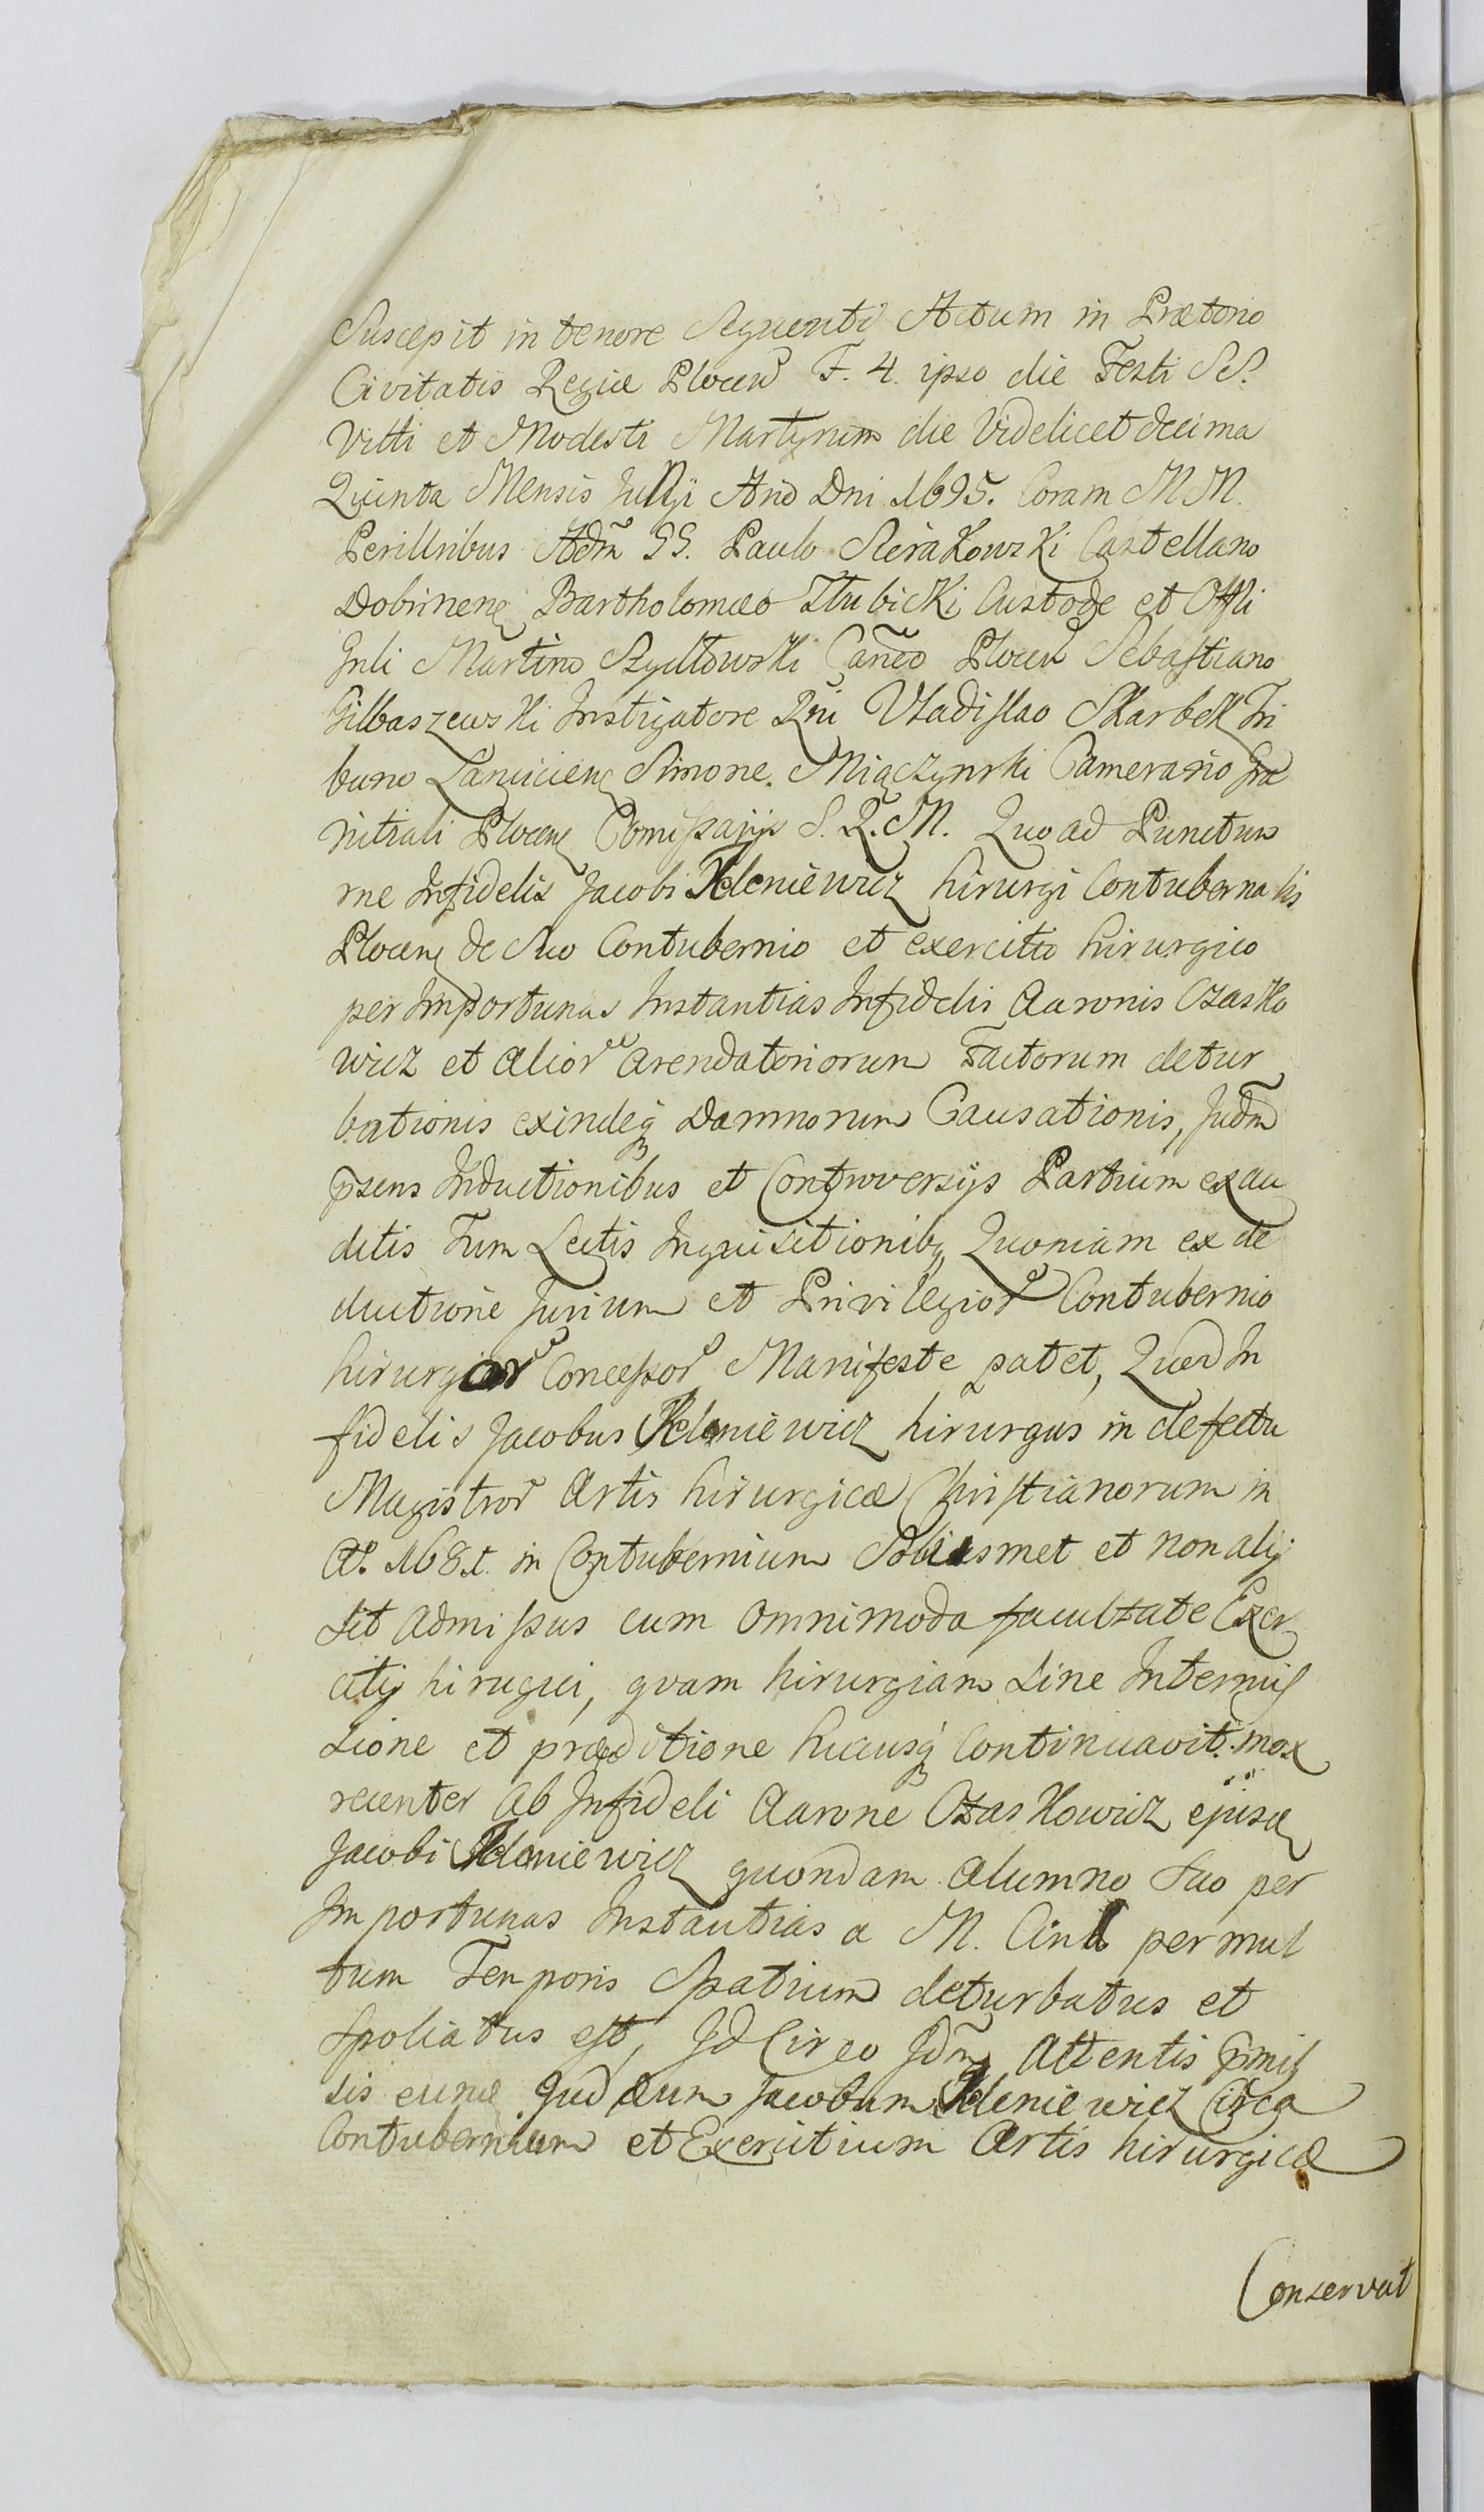 Suscepit in tenore Sequenti Actum in Prætorio
Civitatis Regiæ Plocen F. 4. ipso die Festi SS.
Vitti et Modesti Martyrum die Videlicet decima
Quinta Mensis Junÿi Ano Dni 1695. Coram M M.
Perillribus Adm GG. Paulo Sierakowski Castellano
Dobrinen Bartholomæo Zlubicki Custode et Offli
Gnli Martino Szydlowski Canco Plocen Sebastiano
Gilbaszewski Instigatore Rni Vladislao Skarbek Tri
buno Lanicien Simone Miączynski Camerario Gra
nitiali Plocen Comissarÿs S. R. M. Quo ad Punctum
rne Infidelis Jacobi Zeleniewicz hirurgi Contubernalis
Plocen de Suo Contubernio et exercitio hirurgico
per Importunas Instantias Infidelis Aaronis Czasko
wicz et Alior Arendatoriorum Factorum detur
bationis exindeq Damnorum Causationis, Judm
psens Inductionibus et Controversÿs Partium exau
ditis Tum Lectis Inquisitionibq Quoniam ex de
ductione Jurium et Privilegior Contubernio
hirurgior Concessor Manifeste patet, Quod In
fidelis Jacobus Zeleniewicz hirurgus in defectu
Magistror Artis hirurgicæ Christianorum in
Ao. 1681. in Contubernium Solusmet et non alÿ
sit Admissus cum Omnimoda facultate Exer
citÿ hirugici, qvam hirurgiam Sine Intermis
sione et præditione hucusq Continuavit. mox
recenter Ab Infideli Aarone Czaskowicz ejusd
Jacobi Zeleniewicz quondam Alumno Suo per
Importunas Instantias a M. Cind per mul
tum Temporis Spatium deturbatus et
Spoliatus est, Id Circo Jdm Attentis pmis
sis eund Judæum Jacobum Zeleniewicz Circa
Contubernium et Exercitium Artis hirurgicæ
Conservat